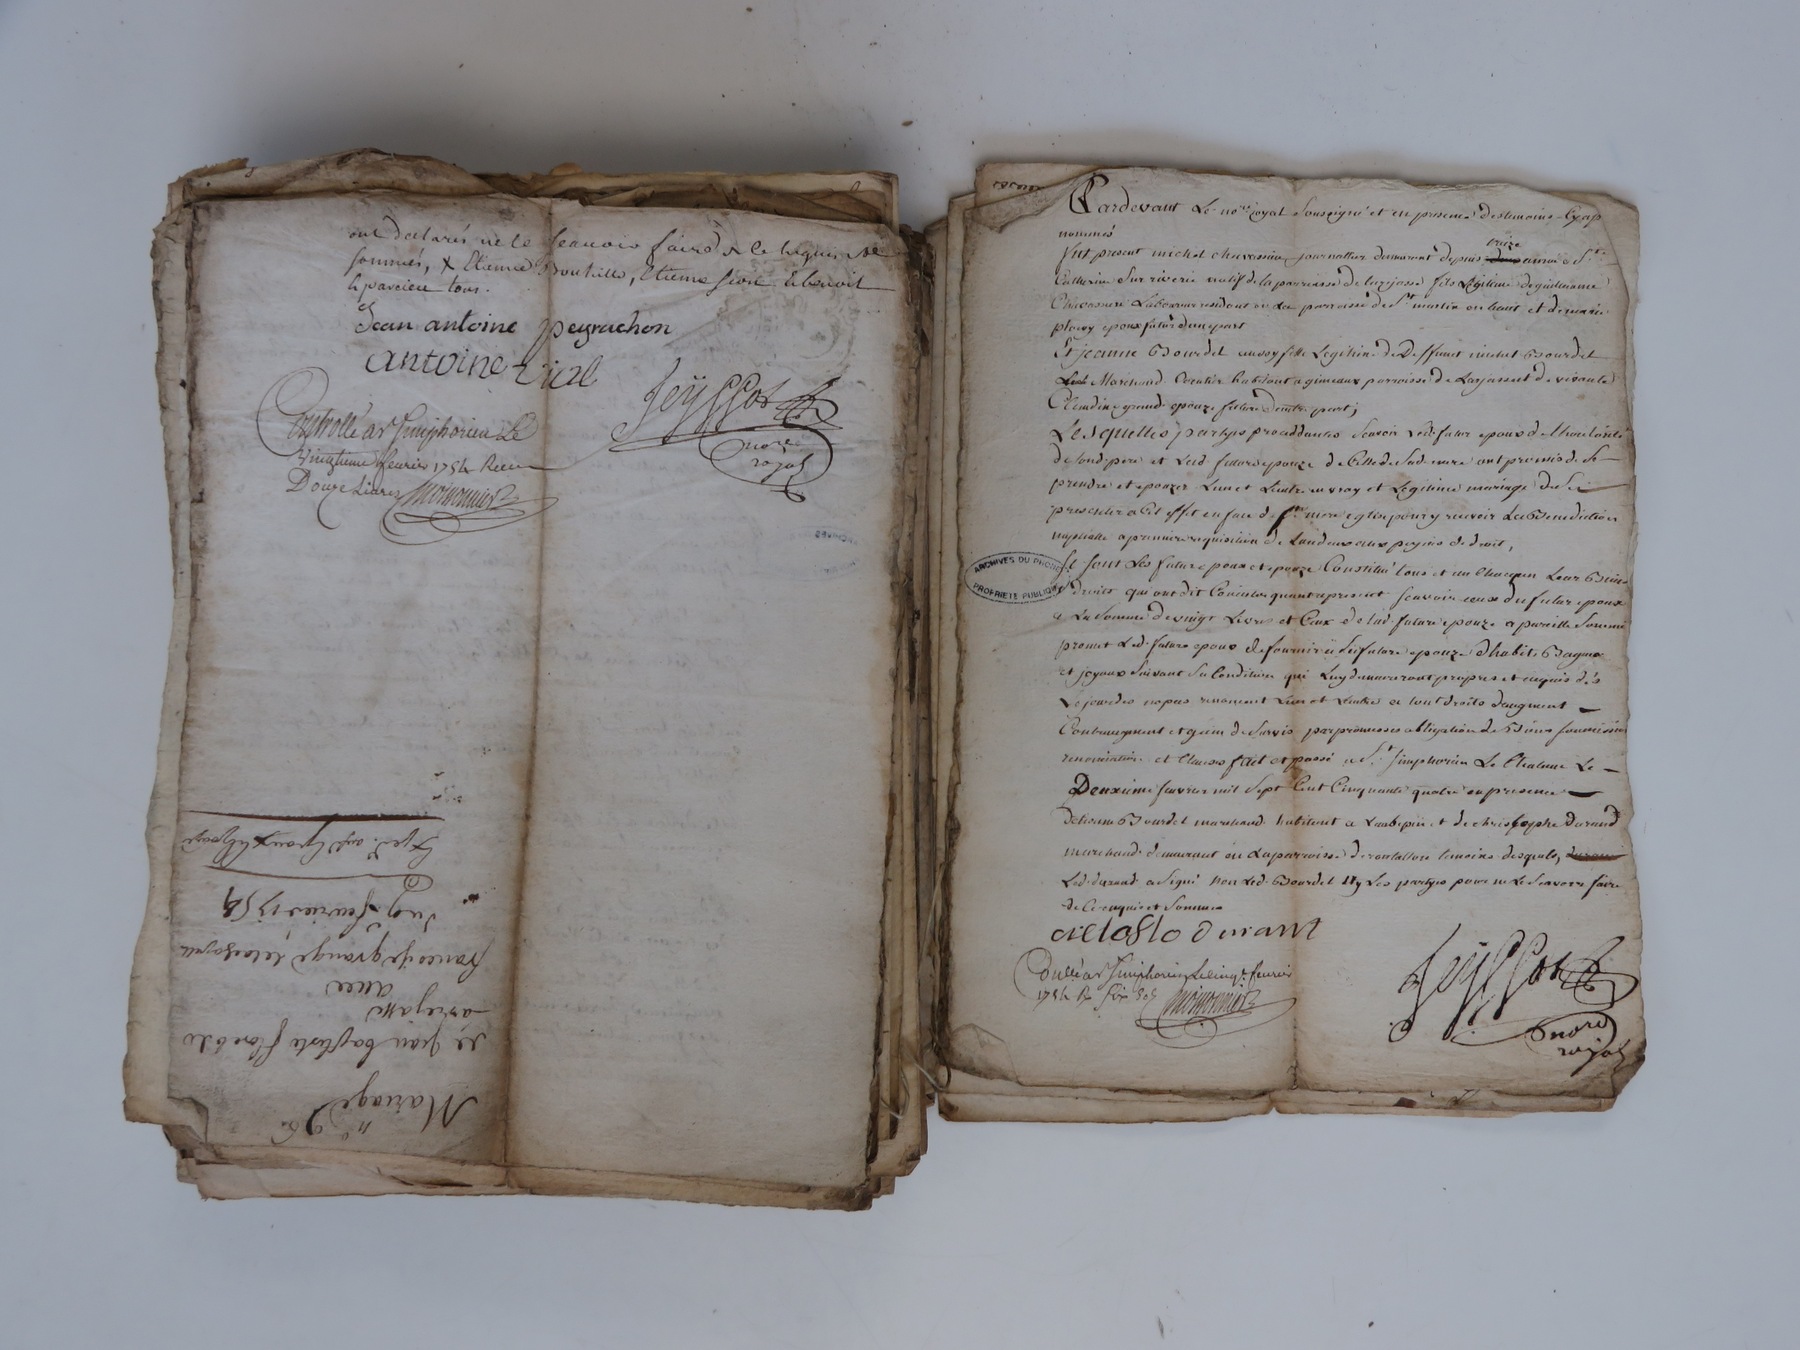 ont declarés ne le scavoir faire de ce requis et
sommés, & Etienne Bouteille, Etienne et benoit
tous.
Jean antoine peyrachon
antoine vial
Jeyssot
no.re
royal
Controllé a s.t Simphorien Le
vingtieme feurier 1754 Receu
Douze Livres Moironnier
Exp.é
du 9 feurier 1754
francoise grange
avec
de jean baptiste
Mariage
n.o 26.
Pardevant Le no.re royal soussigné et en presence des temoins Cy ap
nommés
fut present michel chavassieu journallier demeurant depuis treize année a S.te
Catherine sur riverie natif de la parroisse de larajasse fils Legitime de guilliaume
Chavassieu Laboureur residant en La parroisse de S.t martin en haut et de marie
epoux futur d'une part
Et jeanne Bourdel fille Legitime de Deffunt michel Bourdel
Marchand habitant a gimeaux parroisse de Larajasse et de vivante
Clemdine grand epouze future d'autre part;
Lesquelles partyes proceddantes scavoir Led. futur epoux de l'hautorité
de sond. pere et Lad. future epouze de Celle de sad. mere ont promis de se
prendre et epouzer L'un et L'autre en vray et Legitime mariage de se
presenter a Cet effet en face de s.te mere eglise pour y recevoir La Benediction
nuptialle a premiere requisition de L'un d'eux aux peynes de droit,
Se sont Les futurs epoux et epouze Constitué tous et un Chacqun Leur Biens
& droits qui ont dit Consister quant a present scavoir ceux du futur epoux
a La somme de vingt Livres et Ceux de lad. future epouze a pareille somme
promet Led. futur epoux de fournir a sa future epouze d'habits Bagues
et joyaux suivant sa Condition qui Luy demeureront propres et acquis dés
Le jour des nopces renoncent L'un et L'autre a tout droits d'augment
Contraugment et gain de survie par promesses obligation de Biens soumissions
renonciation et Clauses fait et passé a S.t Simphorien Le Chateau Le
Deuxieme feuvrier mil sept Cent Cinquante quatre en presence
d'etienne Bourdel marchand habitant a L'aubepin et de christophe Durand
marchand demeurant en La parroisse de rontallon temoins desquels,
Led. durand a signé non Led. Bourdel Ny Les partyes pour ne Le scavoir faire
de Ce enquis et sommés
durant
Jeyssot
no.re
royal
Cullé a s.t Simphorien Le cinq feurier
1754 R. six sols Moironnier
ARCHIVES DU RHONE
PROPRIETE PUBLIQUE